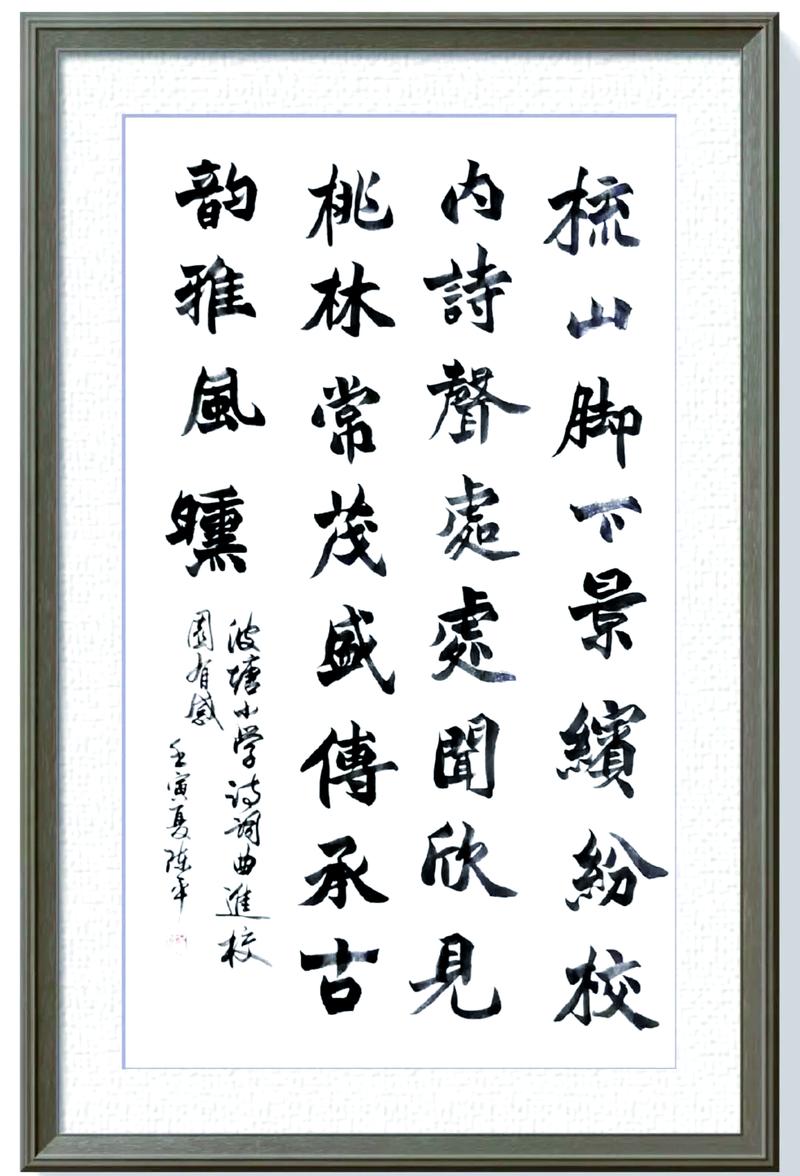 梳山脚下景繽紛校
内詩聲處處聞欣見
桃林常茂盛傳承古
韵雅風曛
波塘小学诗詞曲進校
園有感
壬寅夏陈平